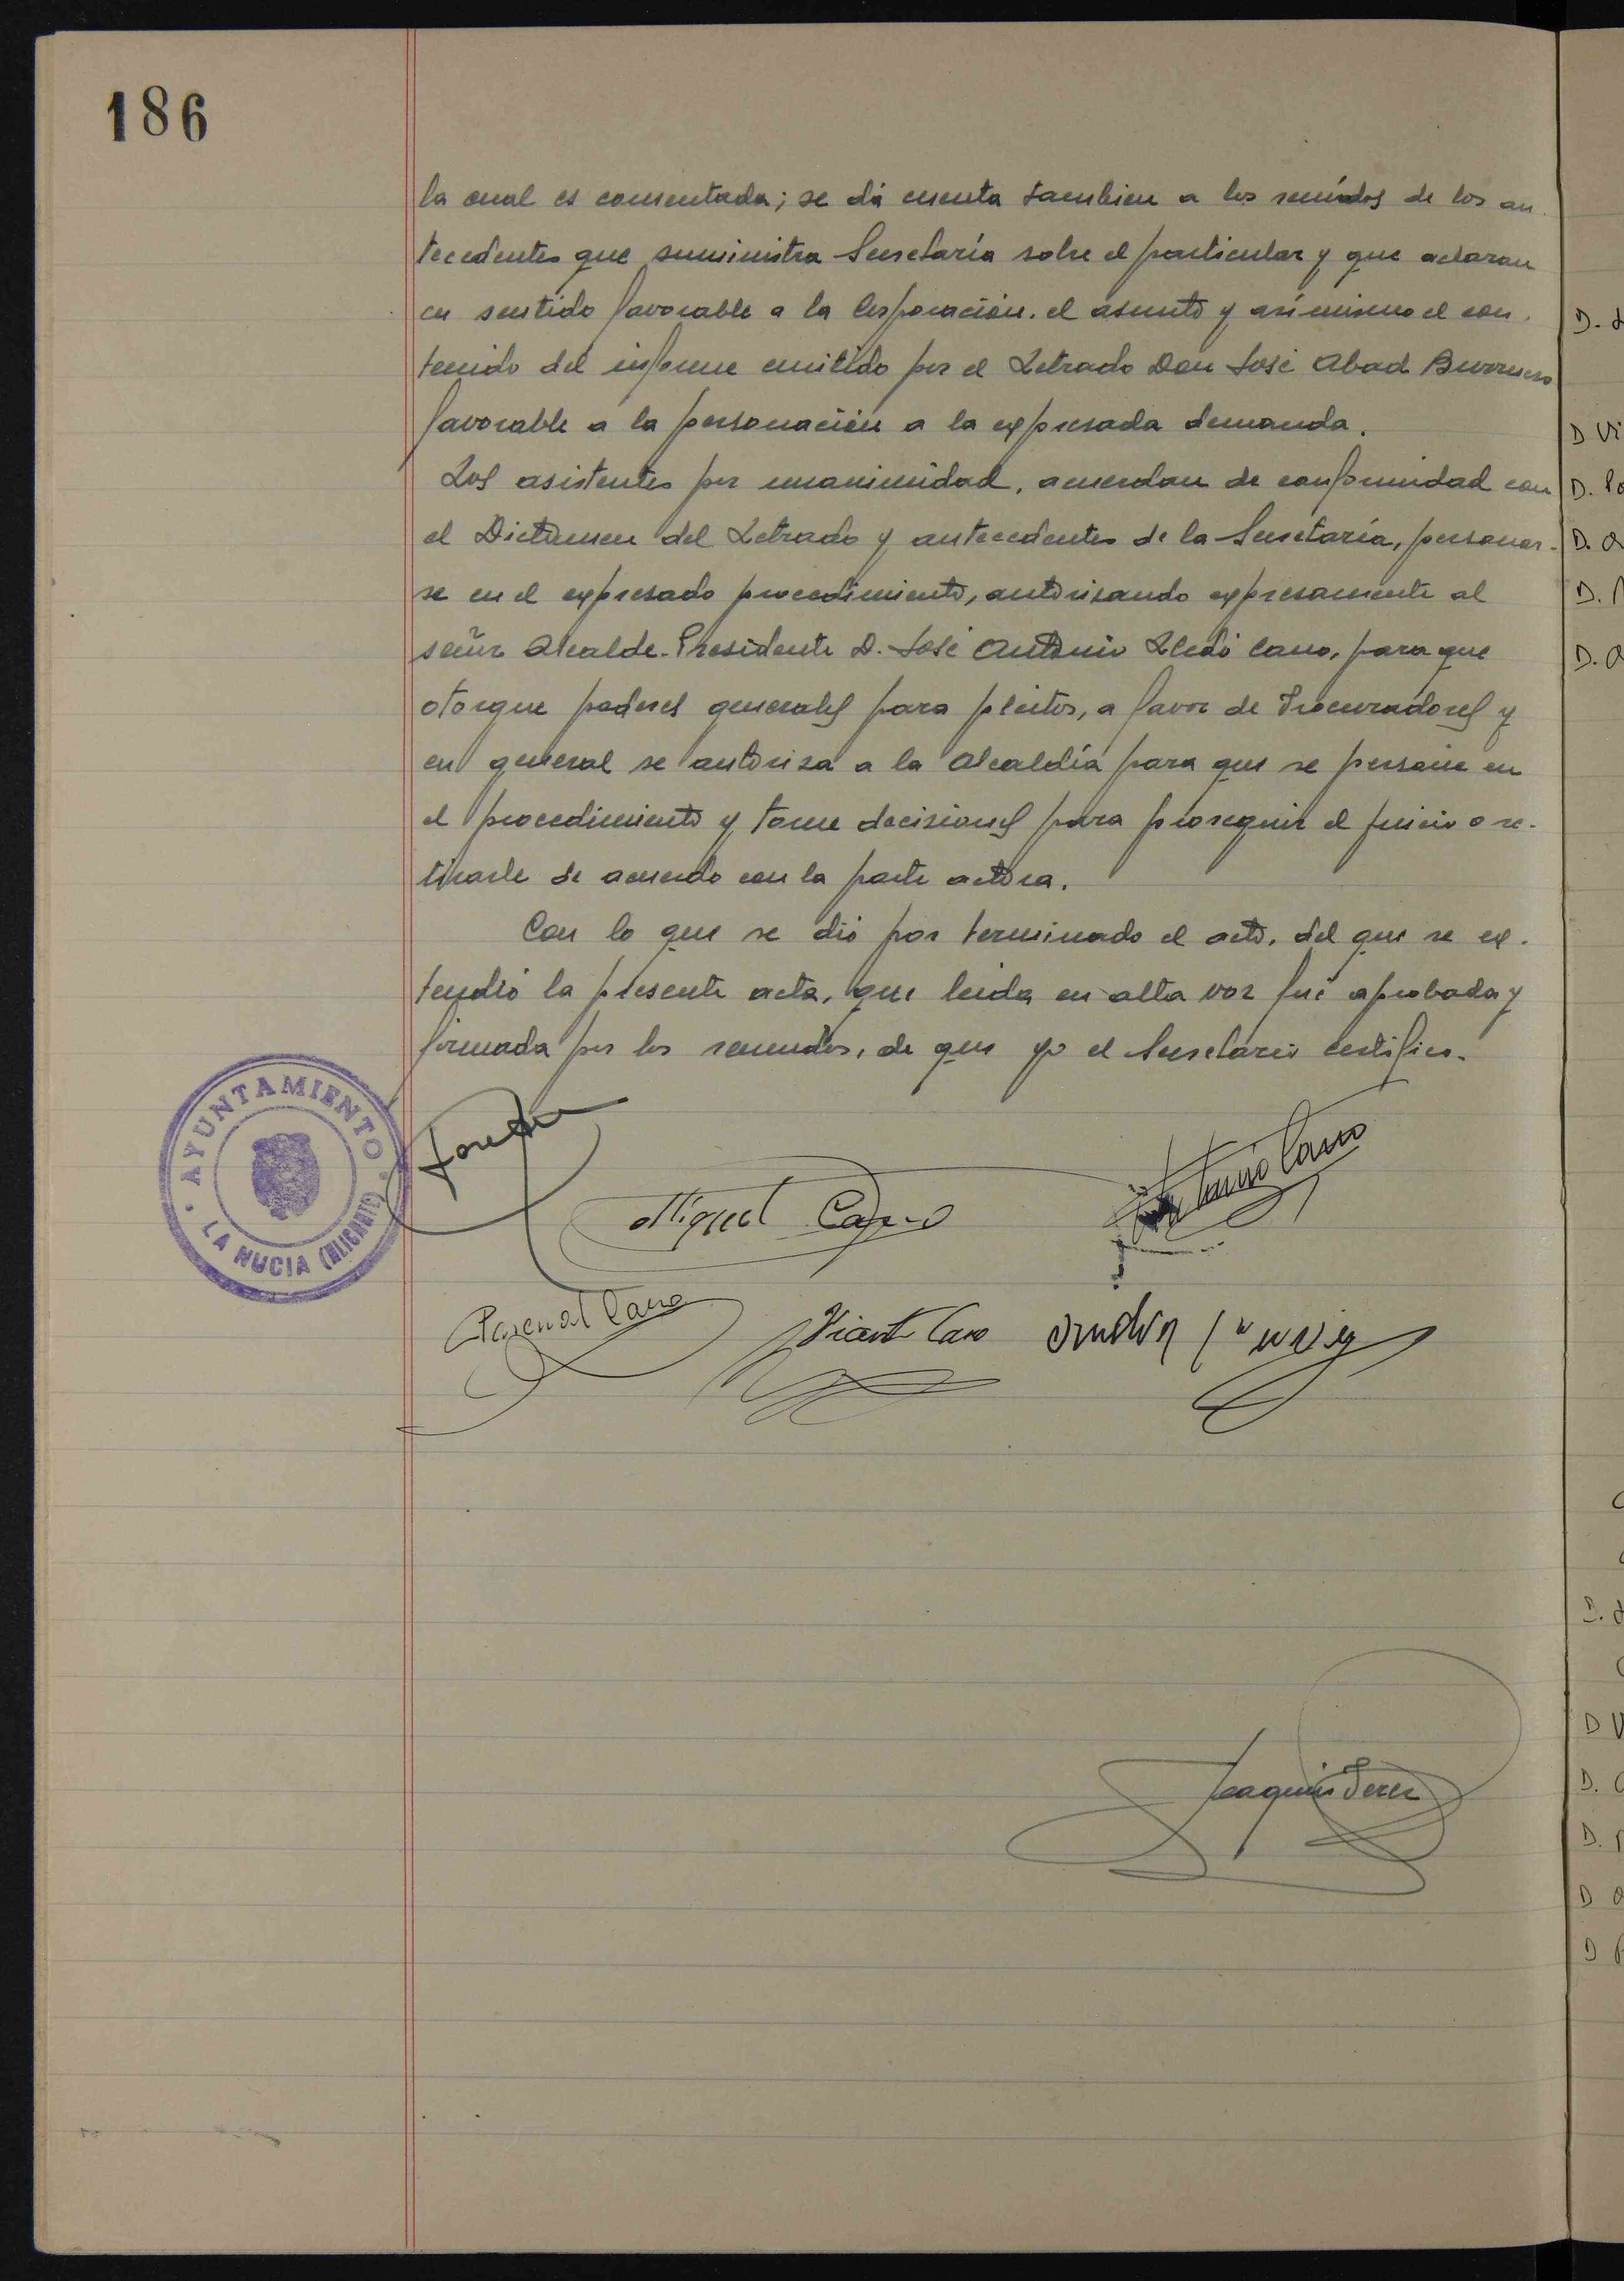 186
la cual es comentada; se dá cuenta tambien a los reunidos de los an-
tecedentes que suministra Secretaría sobre el particular y que aclaran
en sentido favorable a la Corporación, el asunto y asimismo el con-
tenido del informe emitido por el Letrado Don José Abad
favorable a la personación a la expresada demanda.
Los asistentes por unanimidad, acuerdan de conformidad con
el Dictamen del Letrado y antecedentes de la Secretaría, personar-
se en el expresado procedimiento, autorizando expresamente al
señor Alcalde-Presidente D. José Antonio Lledó Cano, para que
otorgue poderes generales para pleitos, a favor de Procuradores y
en general se autoriza a la Alcaldía para que se persone en
el procedimiento y tome decisiones para proseguir el juicio o re-
tirarse de acuerdo con la parte actora.
Con lo que se dió por terminado el acto, del que se ex-
tendió la presente acta, que leida en alta voz fué aprobada y
firmada por los reunidos, de que yo el Secretario certifico.
AYUNTAMIENTO
LA NUCIA (ALICANTE)
Miguel Cano
Antonio Cano
Pascual Cano
Vicente Cano
Joaquin Perez